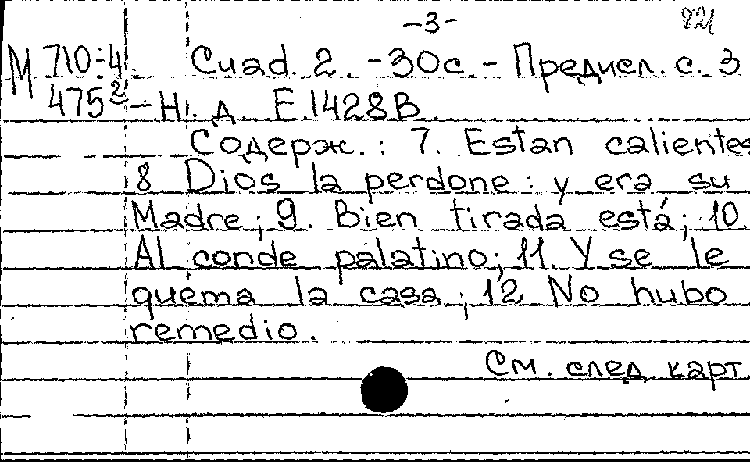 -3-
М 710:4 Cuad. 2. -30с. - Предисл. с. 3
475² - Н. д. Е.1428В.
Содерж.: 7. Estan calientes
8 Dios la perdone: y era su
Madre; 9. Bien tirada está; 10.
Al conde palatino; 11. Y se le
quema la casa; 12 No hubo
remedio.
См. след карт